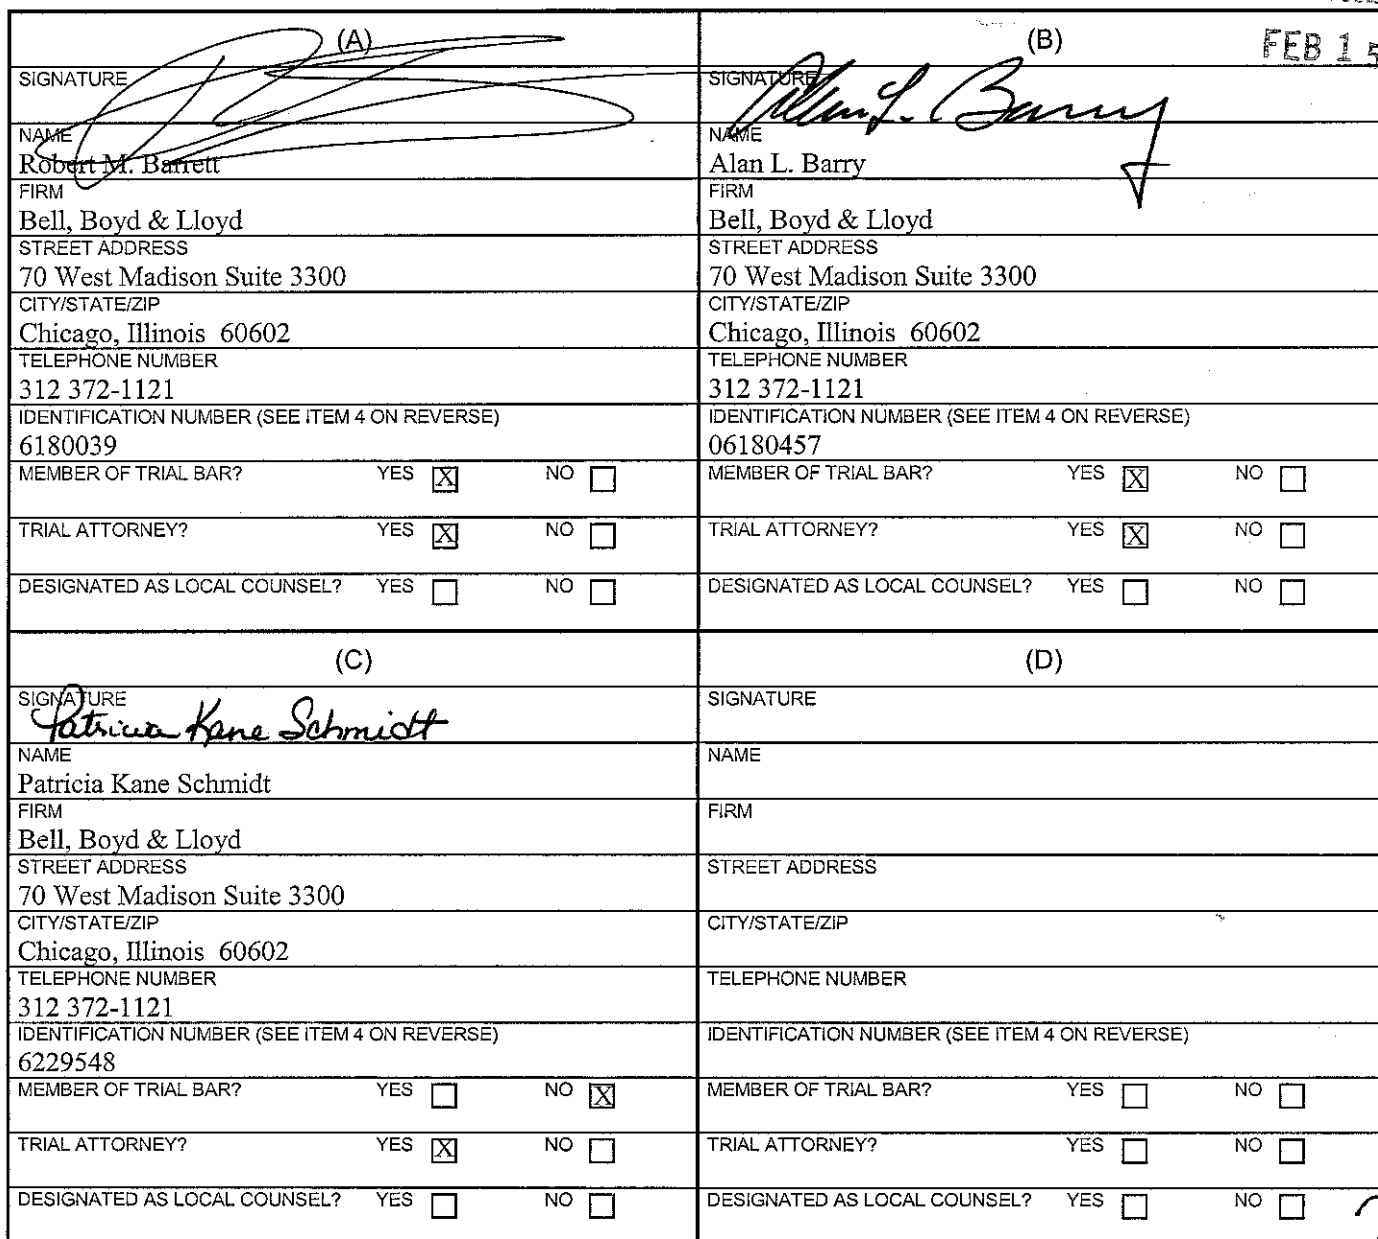 (A)
SIGNATURE
NAME
Robert M. Barrett
FIRM
Bell, Boyd & Lloyd
STREET ADDRESS
70 West Madison Suite 3300
CITY/STATE/ZIP
Chicago, Illinois 60602
TELEPHONE NUMBER
312 372-1121
IDENTIFICATION NUMBER (SEE ITEM 4 ON REVERSE)
6180039
MEMBER OF TRIAL BAR? YES X NO
TRIAL ATTORNEY? YES X NO
DESIGNATED AS LOCAL COUNSEL? YES NO
(B)
FEB 15
SIGNATURE
Alan L. Barry
NAME
Alan L. Barry
FIRM
Bell, Boyd & Lloyd
STREET ADDRESS
70 West Madison Suite 3300
CITY/STATE/ZIP
Chicago, Illinois 60602
TELEPHONE NUMBER
312 372-1121
IDENTIFICATION NUMBER (SEE ITEM 4 ON REVERSE)
06180457
MEMBER OF TRIAL BAR? YES X NO
TRIAL ATTORNEY? YES X NO
DESIGNATED AS LOCAL COUNSEL? YES NO
(C)
SIGNATURE
Patricia Kane Schmidt
NAME
Patricia Kane Schmidt
FIRM
Bell, Boyd & Lloyd
STREET ADDRESS
70 West Madison Suite 3300
CITY/STATE/ZIP
Chicago, Illinois 60602
TELEPHONE NUMBER
312 372-1121
IDENTIFICATION NUMBER (SEE ITEM 4 ON REVERSE)
6229548
MEMBER OF TRIAL BAR? YES NO X
TRIAL ATTORNEY? YES X NO
DESIGNATED AS LOCAL COUNSEL? YES NO
(D)
SIGNATURE
NAME
FIRM
STREET ADDRESS
CITY/STATE/ZIP
TELEPHONE NUMBER
IDENTIFICATION NUMBER (SEE ITEM 4 ON REVERSE)
MEMBER OF TRIAL BAR? YES NO
TRIAL ATTORNEY? YES NO
DESIGNATED AS LOCAL COUNSEL? YES NO